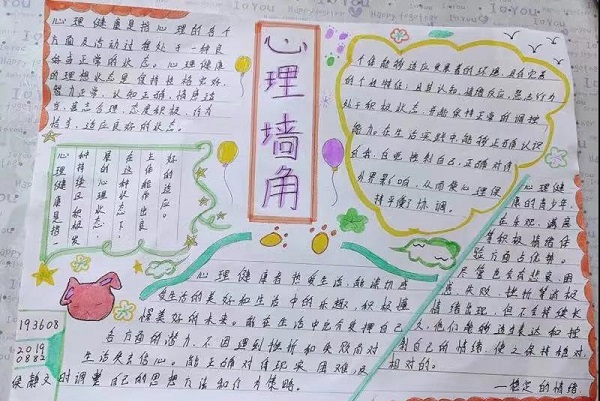 心理健康是指心理的各个
方面及活动过程处于一种良
好或正常的状态。心理健康
的理想状态是保持性格完好、
智力正常、认知正确、情感适
当、意志合理、态度积极、行为
恰当、适应良好的状态。
心理墙角
个体能够适应发展着的环境,具有完善
的个性特征;且其认知,情绪反应,意志行为
处于积极状态,并能保持正常的调控
能力。在生活实践中,能够正确认识
自我,自觉控制自己,正确对待
外界影响,从而使心理保
持平衡协调。
心理健康是指一
种持续且积极发
展的心理状态,
在这种状况下,
主体能作出良
好的适应。
心理健康者热爱生活,能深切感
受生活的美好和生活中的乐趣,积极憧
憬美好的未来。能在生活中充分发挥自己
各方面的潜力,不因遇到挫折和失败而对
生活失去信心。能正确对待现实困难,及
时调整自己的思想方法和行为策略。
心理健
康的青少年
在乐观、满意
等积极情绪体
验方面占优势。
尽管也会有悲哀、困
惑、失败、挫折等消极
情绪出现,但不会持续长
久,他们能够适当表达和控
制自己的情绪,使之保持相对
相对的。
一稳定的情绪
193608
2019
0882
侯静文